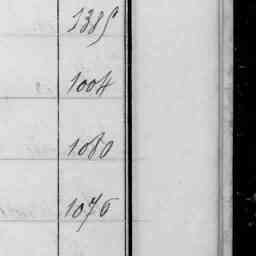 1385
1004
1080
1076